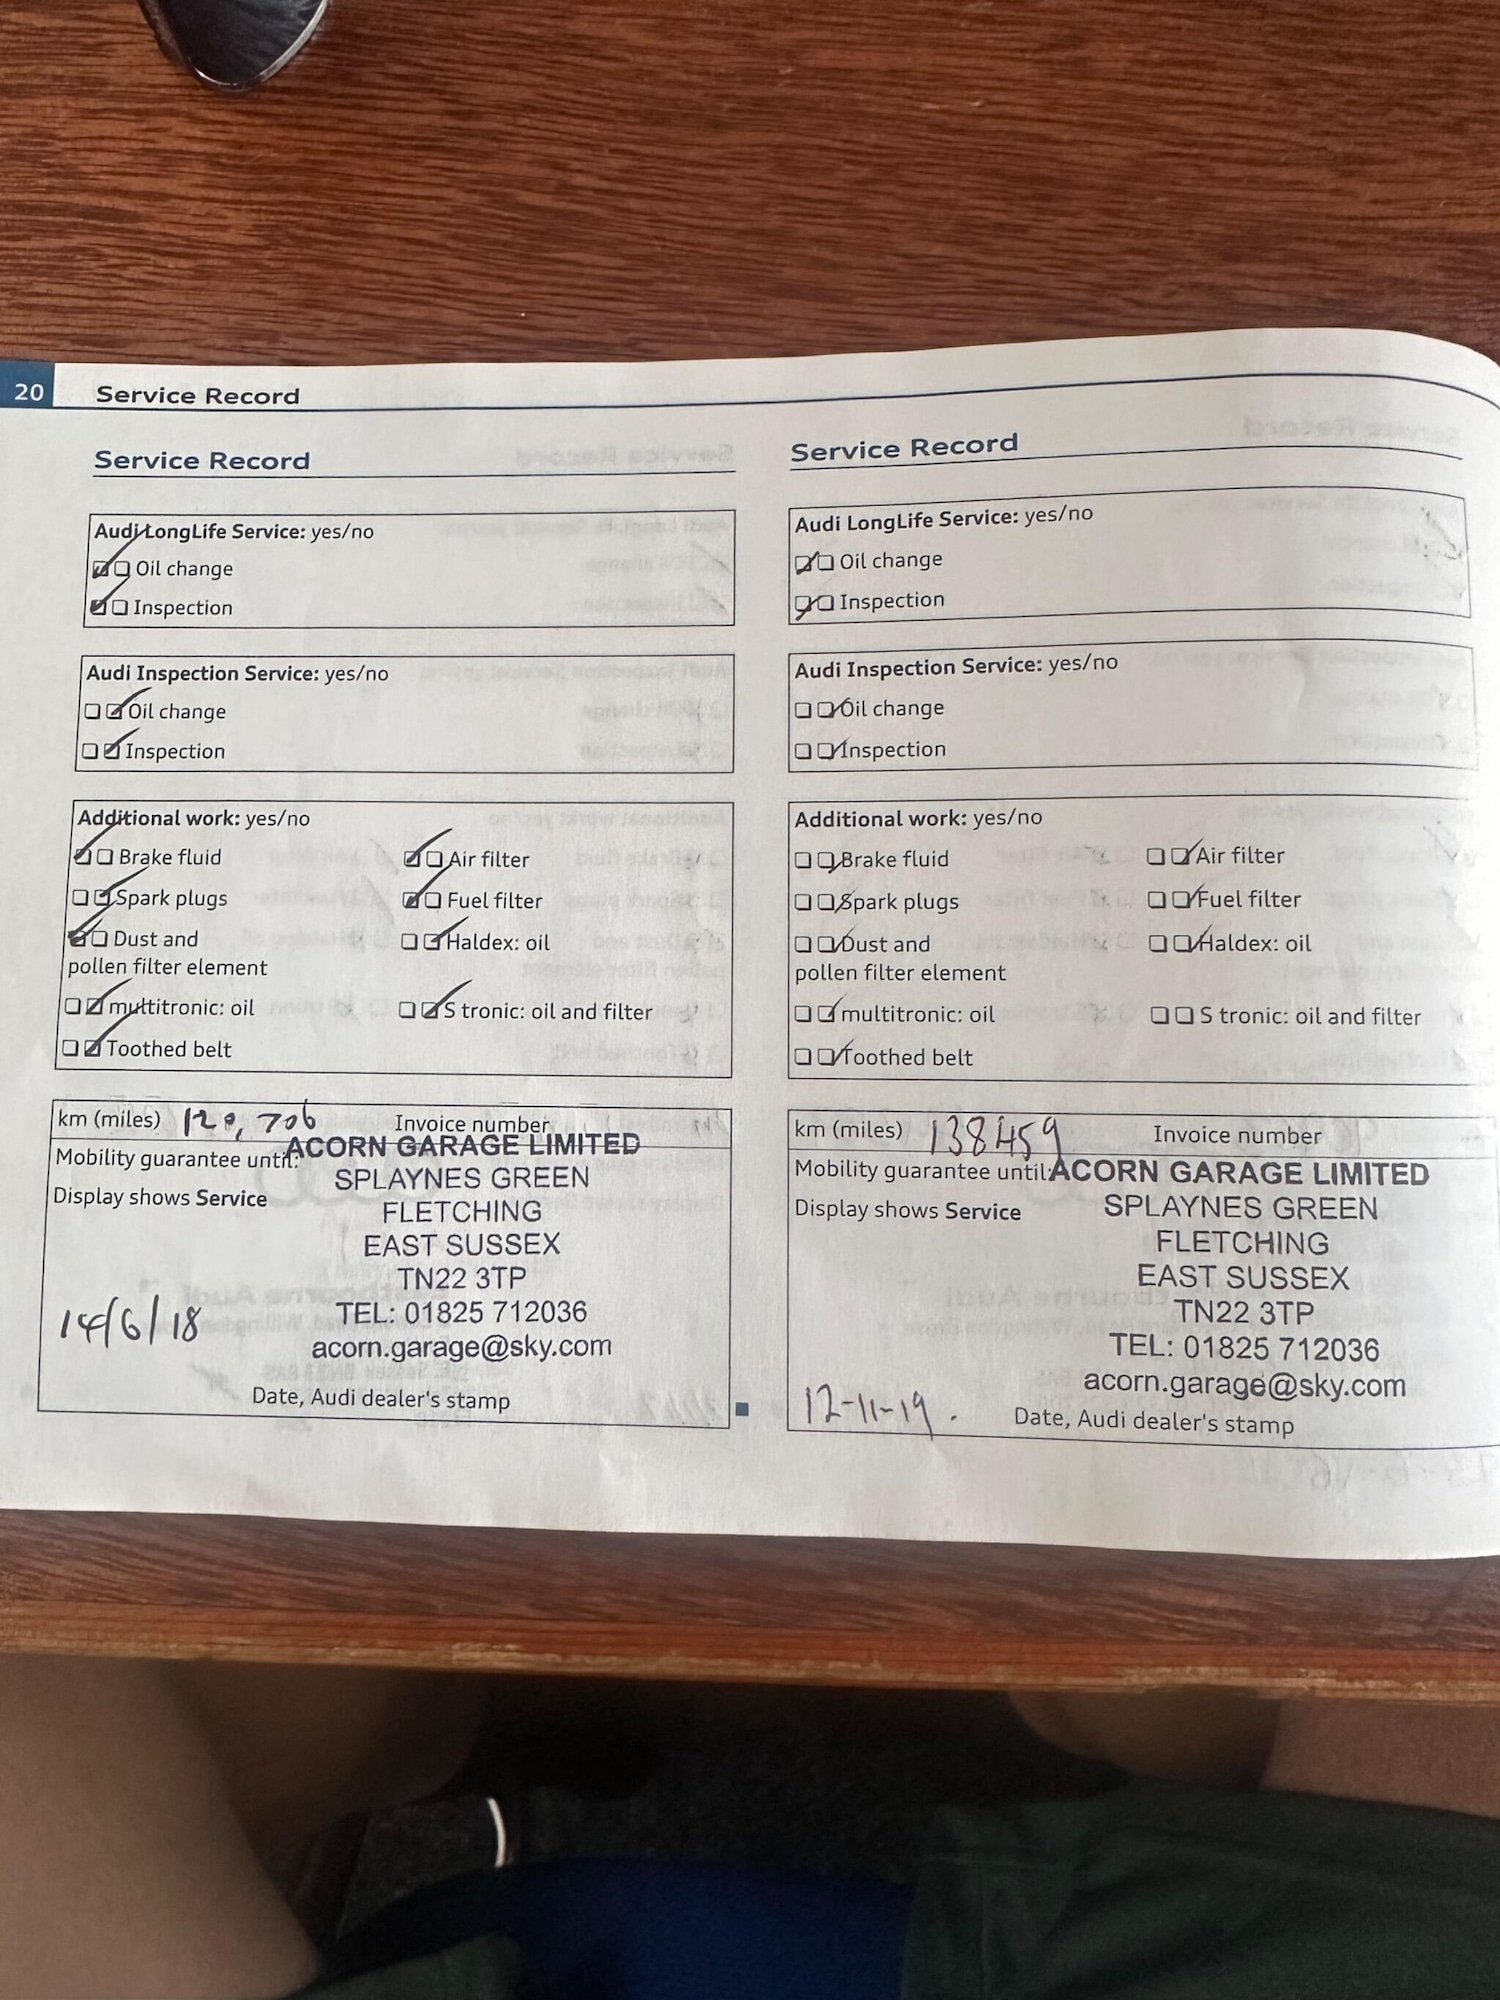 20 Service Record
Service Record
Audi LongLife Service: yes/no
Oil change
Inspection
Audi Inspection Service: yes/no
Oil change
Inspection
Additional work: yes/no
Brake fluid Air filter
Spark plugs Fuel filter
Dust and Haldex: oil
pollen filter element
multitronic: oil S tronic: oil and filter
Toothed belt
km (miles) 120,706 Invoice number
Mobility guarantee until:
Display shows Service
ACORN GARAGE LIMITED
SPLAYNES GREEN
FLETCHING
EAST SUSSEX
TN22 3TP
TEL: 01825 712036
acorn.garage@sky.com
14/6/18
Date, Audi dealer's stamp
Service Record
Audi LongLife Service: yes/no
Oil change
Inspection
Audi Inspection Service: yes/no
Oil change
Inspection
Additional work: yes/no
Brake fluid Air filter
Spark plugs Fuel filter
Dust and Haldex: oil
pollen filter element
multitronic: oil S tronic: oil and filter
Toothed belt
km (miles) 138459 Invoice number
Mobility guarantee until:
Display shows Service
ACORN GARAGE LIMITED
SPLAYNES GREEN
FLETCHING
EAST SUSSEX
TN22 3TP
TEL: 01825 712036
acorn.garage@sky.com
12-11-19.
Date, Audi dealer's stamp